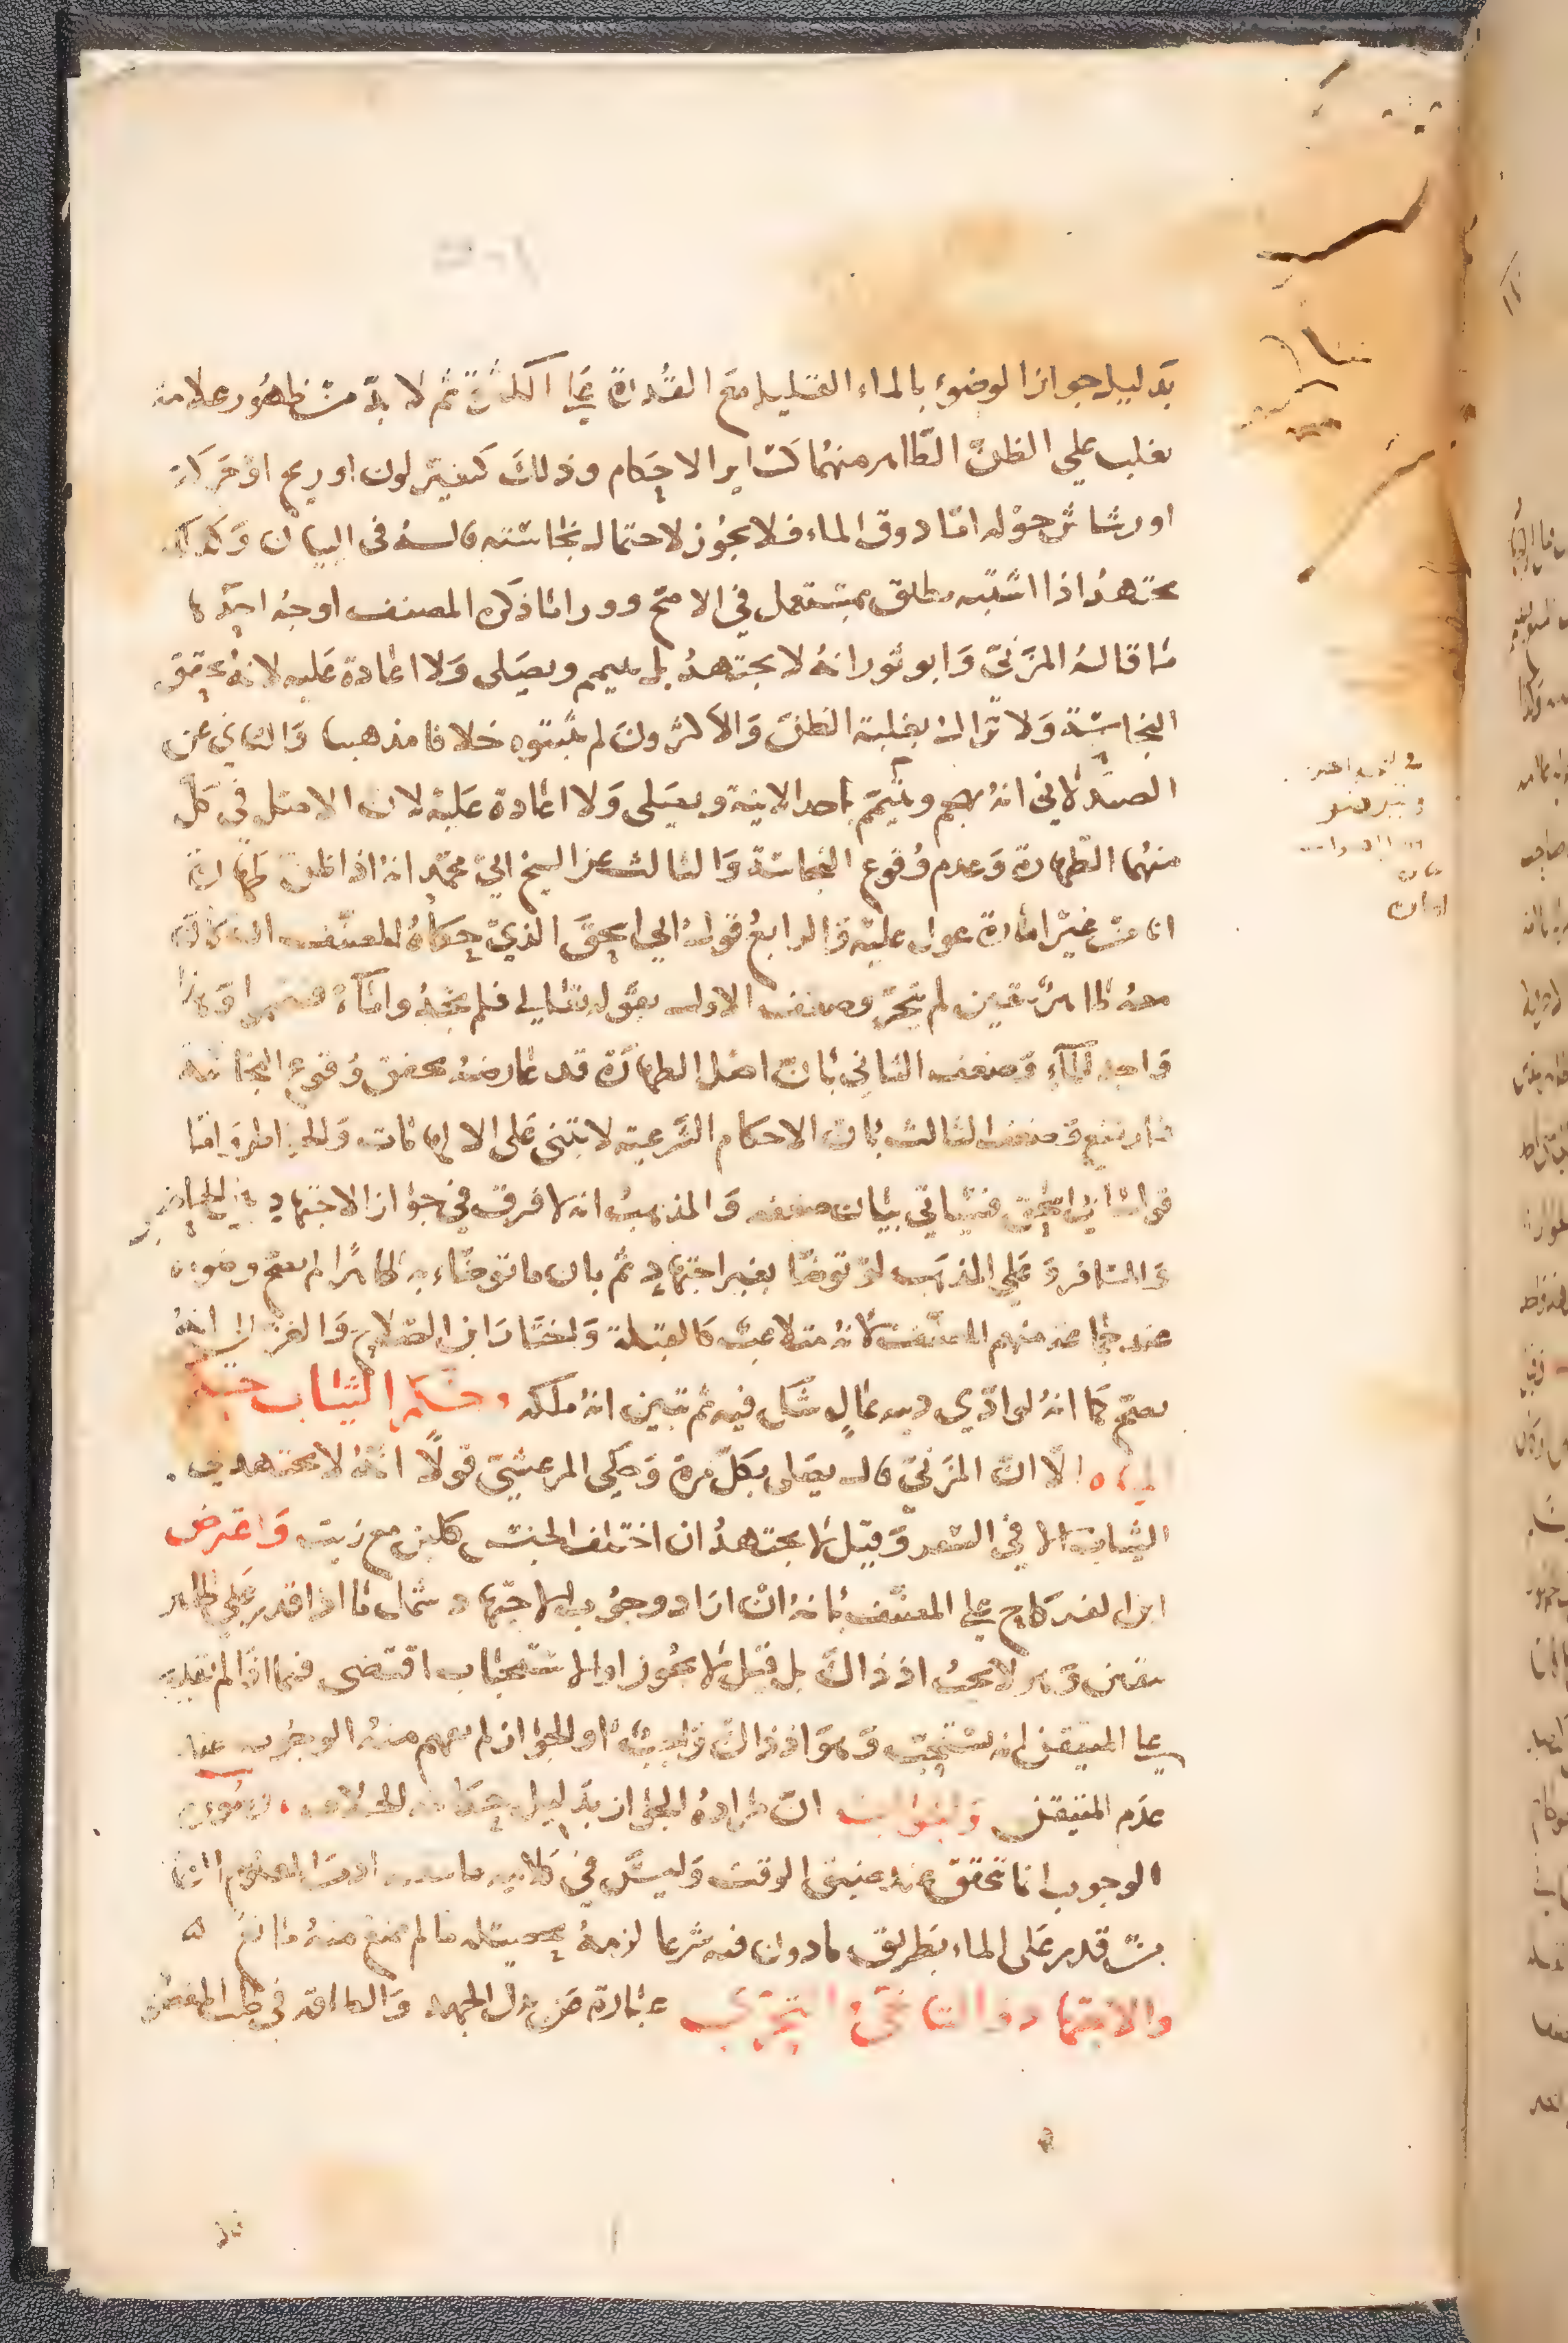 بدليل جواز الوضوء بالماء القليل مع القدرة على الكثرة ثم لا بد من ظهور علامة
يغلب على الظن الطاهر منهما كسائر الاحكام وذلك كتغير لون او ريح او حركة
او رشاش حوله اما ذوق الماء فلا يجوز لاحتمال نجاسته قاله في البيان وكذلك
يجتهد اذا اشتبه مطلق بمستعمل في الاصح وورا ما ذكره المصنف اوجه احدها
ما قاله المزني وابو ثور انه لا يجتهد بل يتيمم ويصلي ولا اعادة عليه لانه تحقق
النجاسة ولا تزال بغلبة الظن والاكثرون لم يثبتوه خلافا مذهبيا والثاني عن
الصيدلاني انه يهجم ويتيمم باحد الانية ويصلي ولا اعادة عليه لان الاصل في كل
منهما الطهارة وعدم وقوع النجاسة والثالث عن الشيخ ابي محمد انه اذا ظن طهارة
انا من غير امارة عول عليه والرابع قول ابي اسحق الذي حكاه المصنف ان كان
معه طاهر بيقين لم يتحر وضعف الاول بقوله تعالى فلم تجدوا ماء فتيمموا وهذا
واجد للماء وضعف الثاني بان اصل الطهارة قد عارضه تحقق وقوع النجاسة
فارتفع وضعف الثالث بان الاحكام الشرعية لا تبنى على الالهامات والخواطر واما
قول ابي اسحق فسياتي بيان ضعفه والمذهب انه لا فرق في جواز الاجتهاد بين الحاضر
والمسافر وعلى المذهب لو توضا بغير اجتهاد ثم بان ما توضاء به طاهرا لم يصح وضوه
عند جماعة منهم المصنف لانه متلاعب كالقبلة واختار ابن الصلاح والغزالي انه
يصح كما انه لو ادي دينه بمال شك فيه ثم تبين انه ملكه وحكم الثياب حكم
المياه الا ان المزني قال يصلي بكل مرة وحكى المرعشي قولا انه لا يجتهد في
الثياب الا في السفر وقيل لا يجتهد ان اختلف الجنس كلبن مع زيت واعترض
ابن الفركاح على المصنف بانه ان اراد وجوب الاجتهاد شمل ما اذا قدر على طاهر
بيقين وهو لا يجب اذ ذاك بل قيل لا يجوز او الاستحباب اقتضى فيما اذا لم يقدر
على المتيقن انه يستحب وهو اذ ذاك واجب او الجواز لم يفهم منه الوجوب عند
عدم المتيقن والجواب ان مراده الجواز بدليل حكاية الخلاف
الوجوب انما تحقق عند ضيق الوقت وليس في كلامه المعلوم ان
من قدر على الماء بطريق مأذون فيه شرعا لزمه تحصيله ما لم يمنع منه مانع
والاجتهاد والتاخي والتحري عبارة عن بذل الجهد والطاقة في طلب المقصود